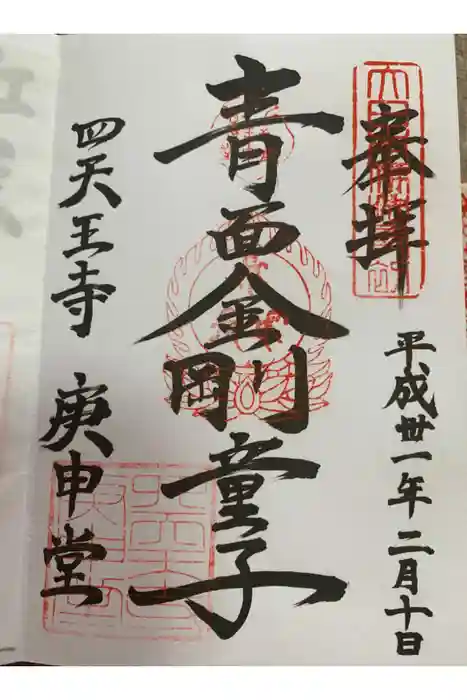 奉拝
平成卅一年二月十日
青面金剛童子
四天王寺 庚申堂